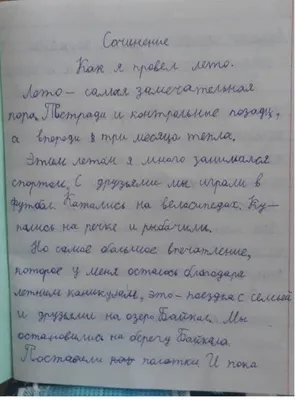 Сочинение
Как я провел лето.
Лето – самая замечательная
пора. Тетради и контрольные позади,
а впереди три месяца тепла.
Этим летом я много занимался
спортом. С друзьями мы играли в
футбол. Катались на велосипедах. Ку-
пались на речке и рыбачили.
Но самое большое впечатление,
которое у меня осталось благодаря
летним каникулам, это – поездка с семьей
и друзьями на озеро Байкал. Мы
остановились на берегу Байкала.
Поставили палатки И пока